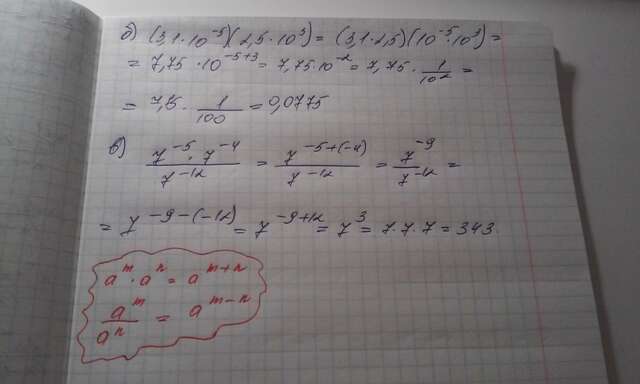 б) (3,1·10⁻⁵)(2,5·10³) = (3,1·2,5)(10⁻⁵·10³) =
= 7,75·10⁻⁵⁺³ = 7,75·10⁻² = 7,75·1/10² =
= 7,75·1/100 = 0,0775
в) 7⁻⁵·7⁻⁴/7⁻¹² = 7⁻⁵⁺⁽⁻⁴⁾/7⁻¹² = 7⁻⁹/7⁻¹² =
= 7⁻⁹⁻⁽⁻¹²⁾ = 7⁻⁹⁺¹² = 7³ = 7·7·7 = 343.
aᵐ·aⁿ = aᵐ⁺ⁿ
aᵐ/aⁿ = aᵐ⁻ⁿ